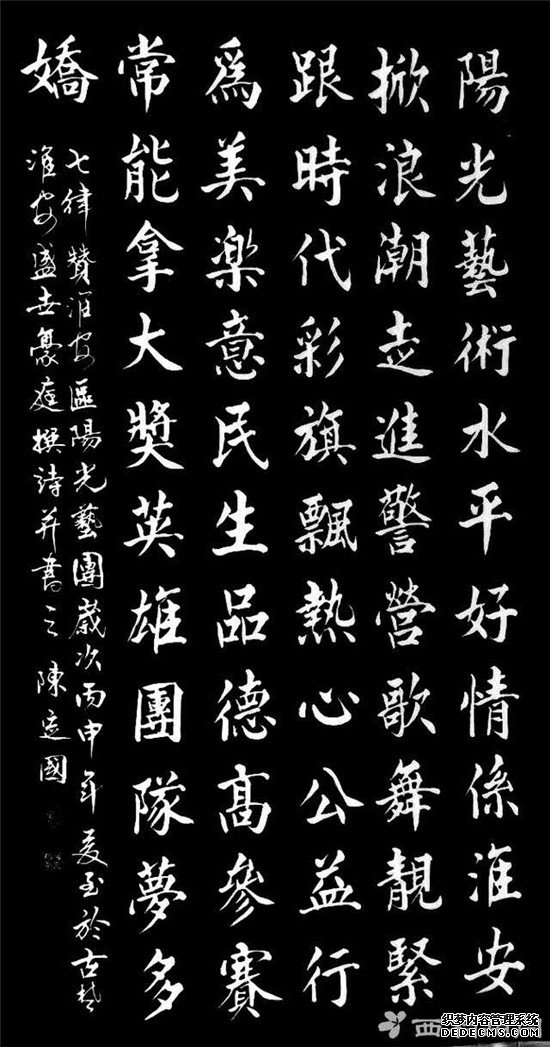 陽光藝術水平好情係淮安
掀浪潮走進警營歌舞靚緊
跟時代彩旗飄熱心公益行
爲美楽意民生品德髙參賽
常能拿大獎英雄團隊夢多
嬌
七律贊淮安區陽光藝團歲次丙申年夏至於古楚
淮安盛世豪庭撰詩并書之陳定國
西
织梦内容管理系统
DEDECMS.COM